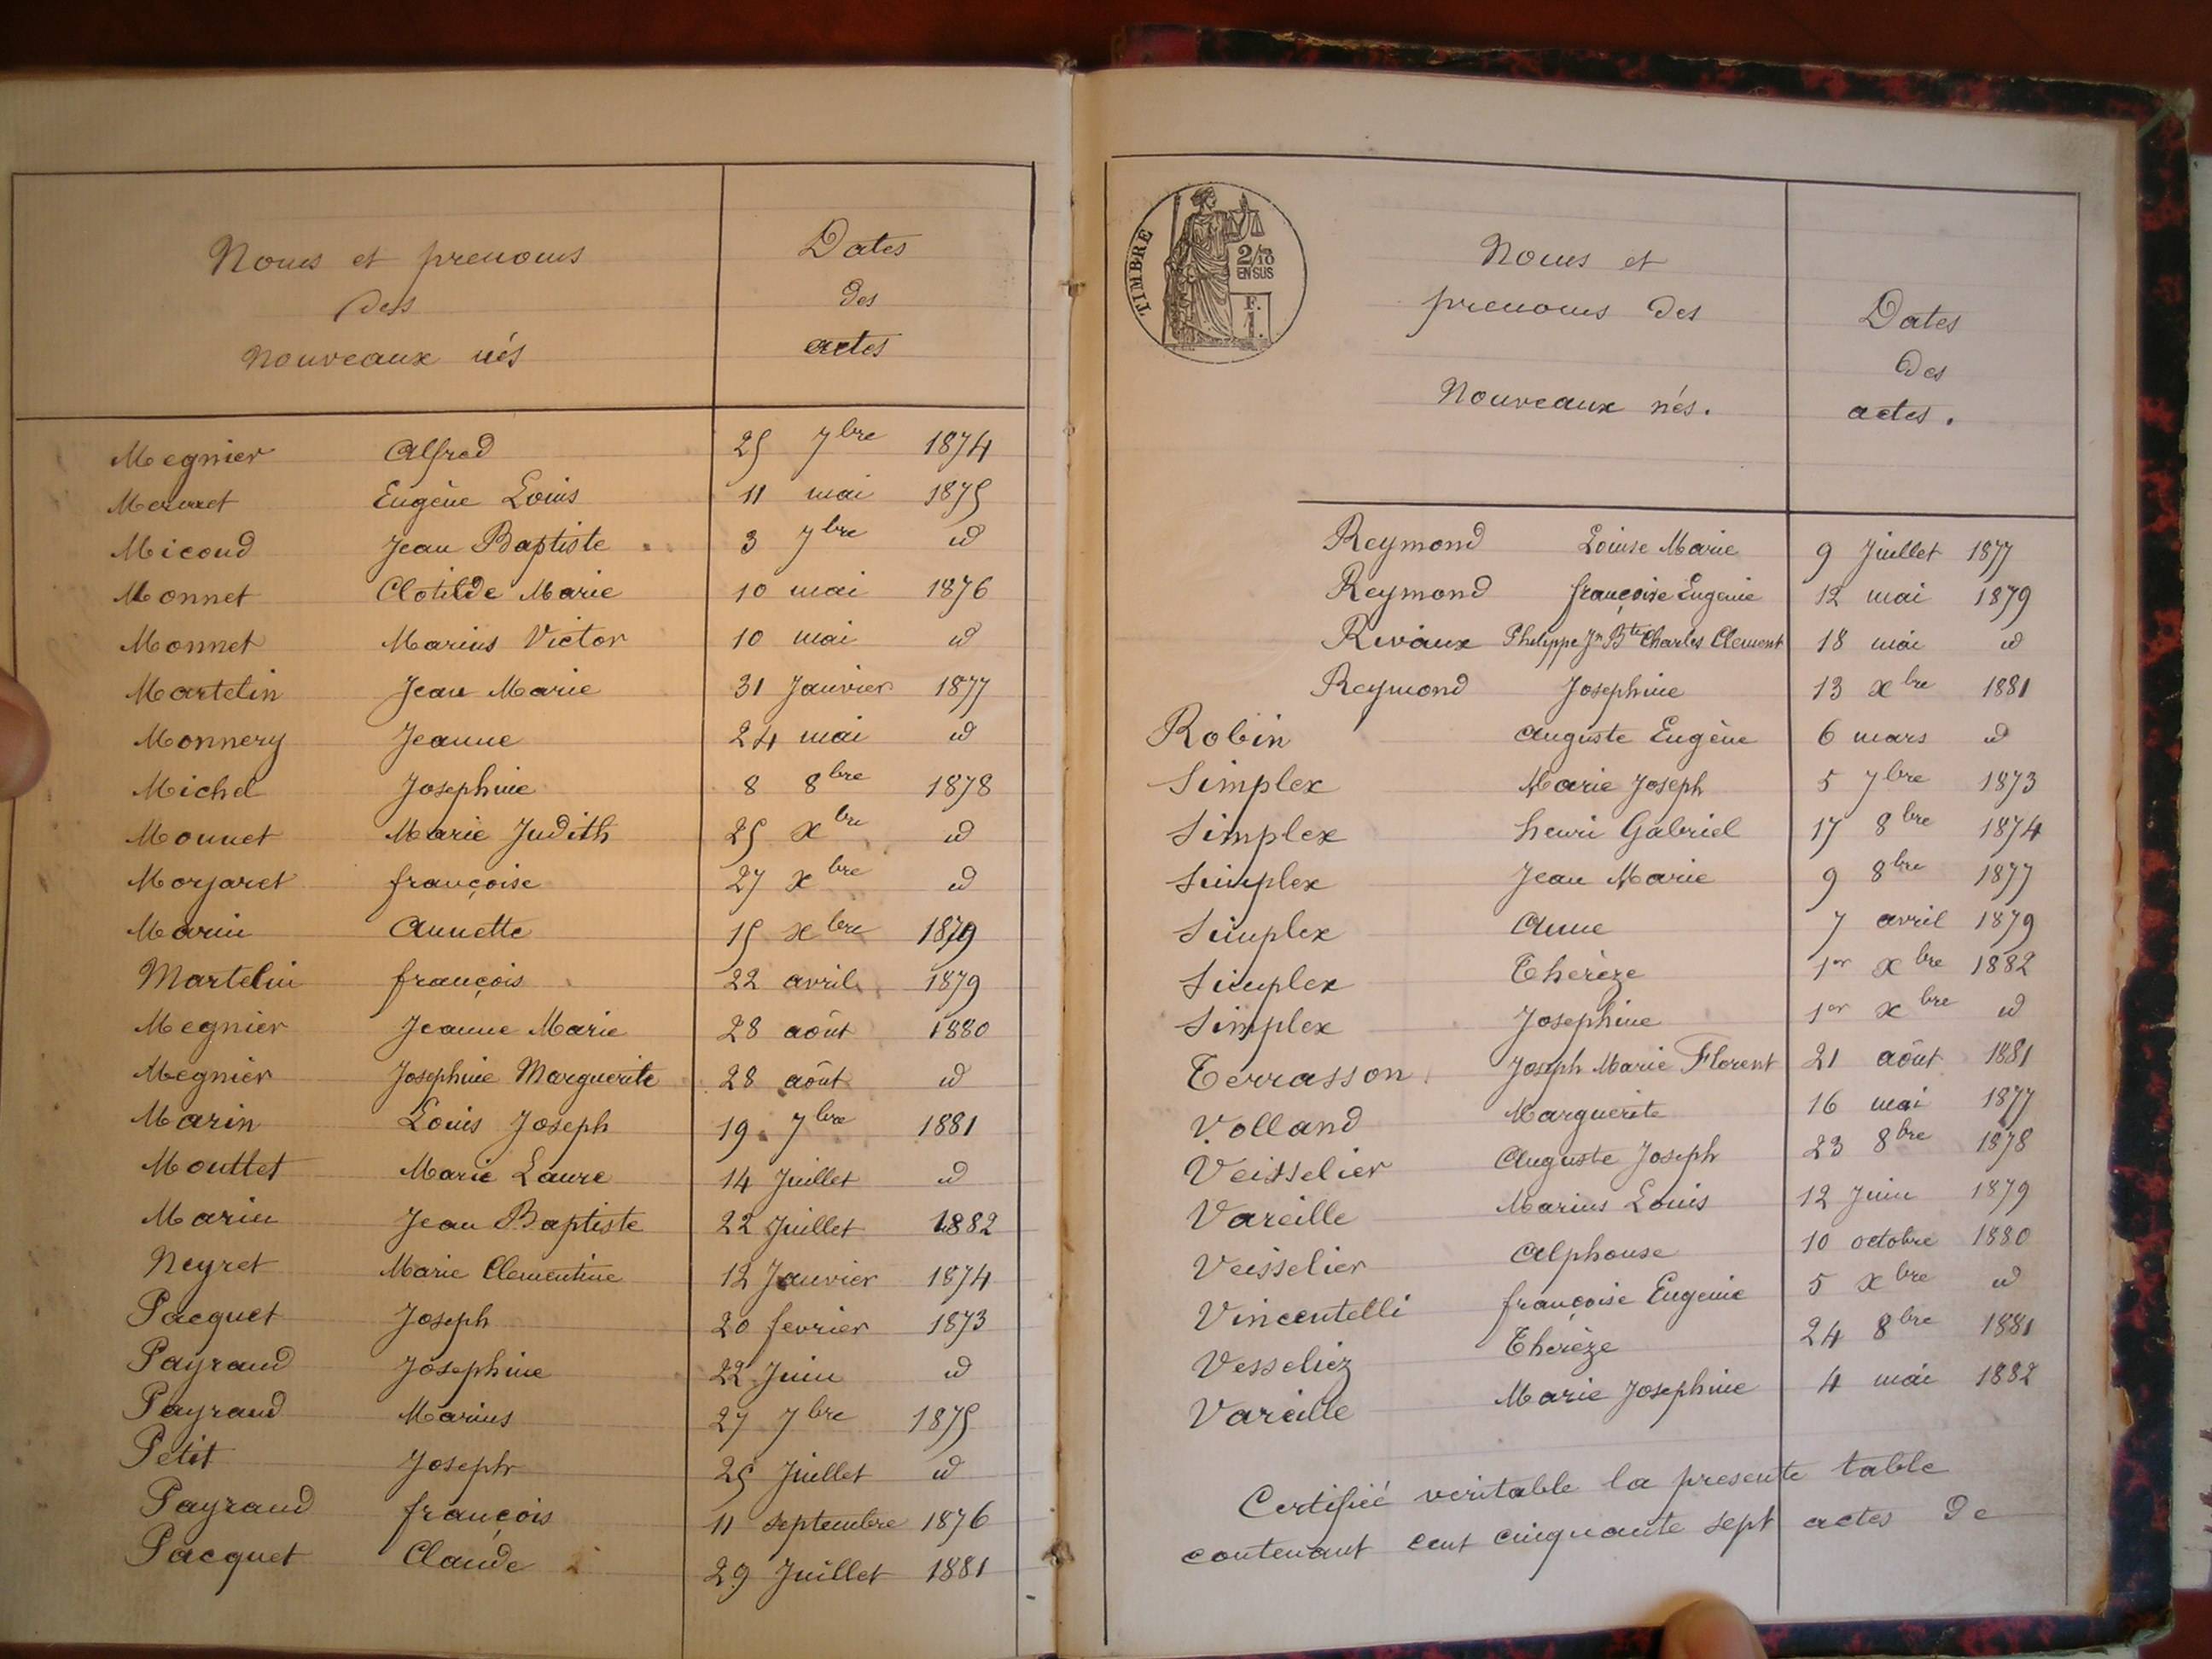 Noms et prenoms
des
nouveaux nés
Dates
des
actes
Megnier Alfred 25 7bre 1874
Eugène Louis 11 mai 1875
Micoud Jean Baptiste 3 7bre id
Monnet Clotilde Marie 10 mai 1876
Monnet Marius Victor 10 mai id
Martelin Jean Marie 31 Janvier 1877
Monnery Jeanne 24 mai id
Michel Josephine 8 8bre 1878
Monnet Marie Judith 25 xbre id
Morjaret françoise 27 xbre id
Marin Annette 15 xbre 1879
Martelin françois 22 avril 1879
Megnier Jeanne Marie 28 août 1880
Megnier Josephine Marguerite 28 août id
Marin Louis Joseph 19 7bre 1881
Mouttet Marie Laure 14 Juillet id
Marin Jean Baptiste 22 Juillet 1882
Neyret Marie Clementine 12 Janvier 1874
Pacquet Joseph 20 fevrier 1873
Payraud Josephine 22 Juin id
Payraud Marius 27 7bre 1875
Petit Joseph 25 Juillet id
Payraud françois 11 septembre 1876
Pacquet Claude 29 Juillet 1881
TIMBRE
2/10
EN SUS
F.
1.
Noms et
prenoms des
Nouveaux nés.
Dates
des
actes.
Reymond Louise Marie 9 Juillet 1877
Reymond françoise Eugenie 12 mai 1879
Rivaux Philippe Jn Bte Charles Clement 18 mai id
Reymond Josephine 13 xbre 1881
Robin Auguste Eugène 6 mars id
Simplex Marie Joseph 5 7bre 1873
Simplex henri Gabriel 17 8bre 1874
Simplex Jean Marie 9 8bre 1877
Simplex Anne 7 avril 1879
Simplex Thérèze 1er xbre 1882
Simplex Josephine 1er xbre id
Terrasson Joseph Marie Florent 21 août 1881
Volland Marguerite 16 mai 1877
Veisselier Auguste Joseph 23 8bre 1878
Vareille Marius Louis 12 Juin 1879
Veisselier Alphonse 10 octobre 1880
Vincentelli françoise Eugenie 5 xbre id
Vesseliez Thérèze 24 8bre 1881
Vareille Marie Josephine 4 mai 1882
Certifié veritable la presente table
contenant cent cinquante sept actes de